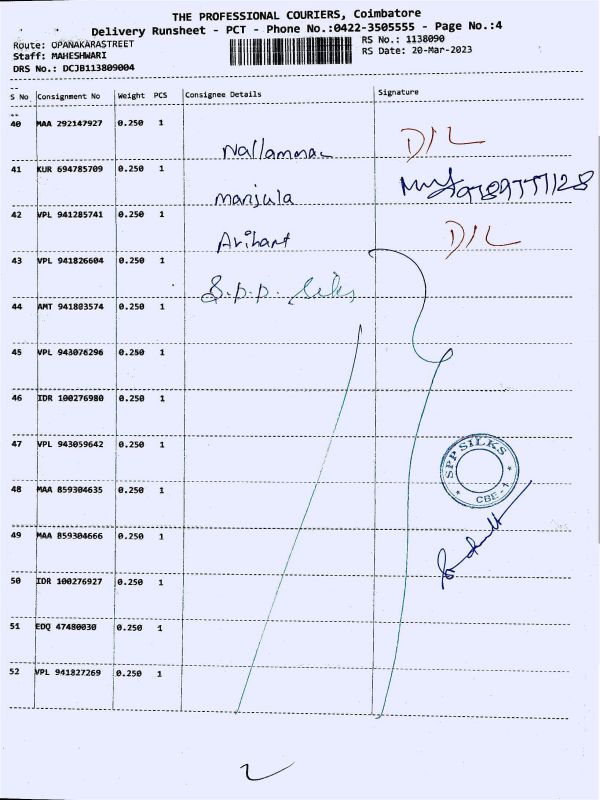 THE PROFESSIONAL COURIERS, Coimbatore
Delivery Runsheet - PCT - Phone No.:0422-3505555 - Page No.:4
Route: OPANAKARASTREET
RS No.: 1138090
Staff: MAHESHWARI
RS Date: 20-Mar-2023
DRS No.: DCJB113809004
S No Consignment No Weight PCS Consignee Details Signature
40 MAA 292147927 0.250 1
Nallammal D/L
41 KUR 694785709 0.250 1
Manjula
42 VPL 941285741 0.250 1
Arihant D/L
43 VPL 941826604 0.250 1
S.P.P. Silks
44 AMT 941803574 0.250 1
45 VPL 943076296 0.250 1
46 IDR 100276980 0.250 1
47 VPL 943059642 0.250 1
SPP SILKS
CBE - 1
48 MAA 859304635 0.250 1
49 MAA 859304666 0.250 1
50 IDR 100276927 0.250 1
51 EDQ 47480030 0.250 1
52 VPL 941827269 0.250 1